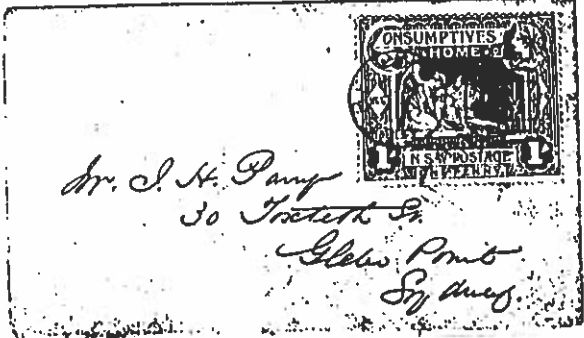 ONSUMPTIVES
HOME
1 N.S.W. POSTAGE 1
Mr. J. H.
30 Toxteth St.
Glebe Point
Sydney.